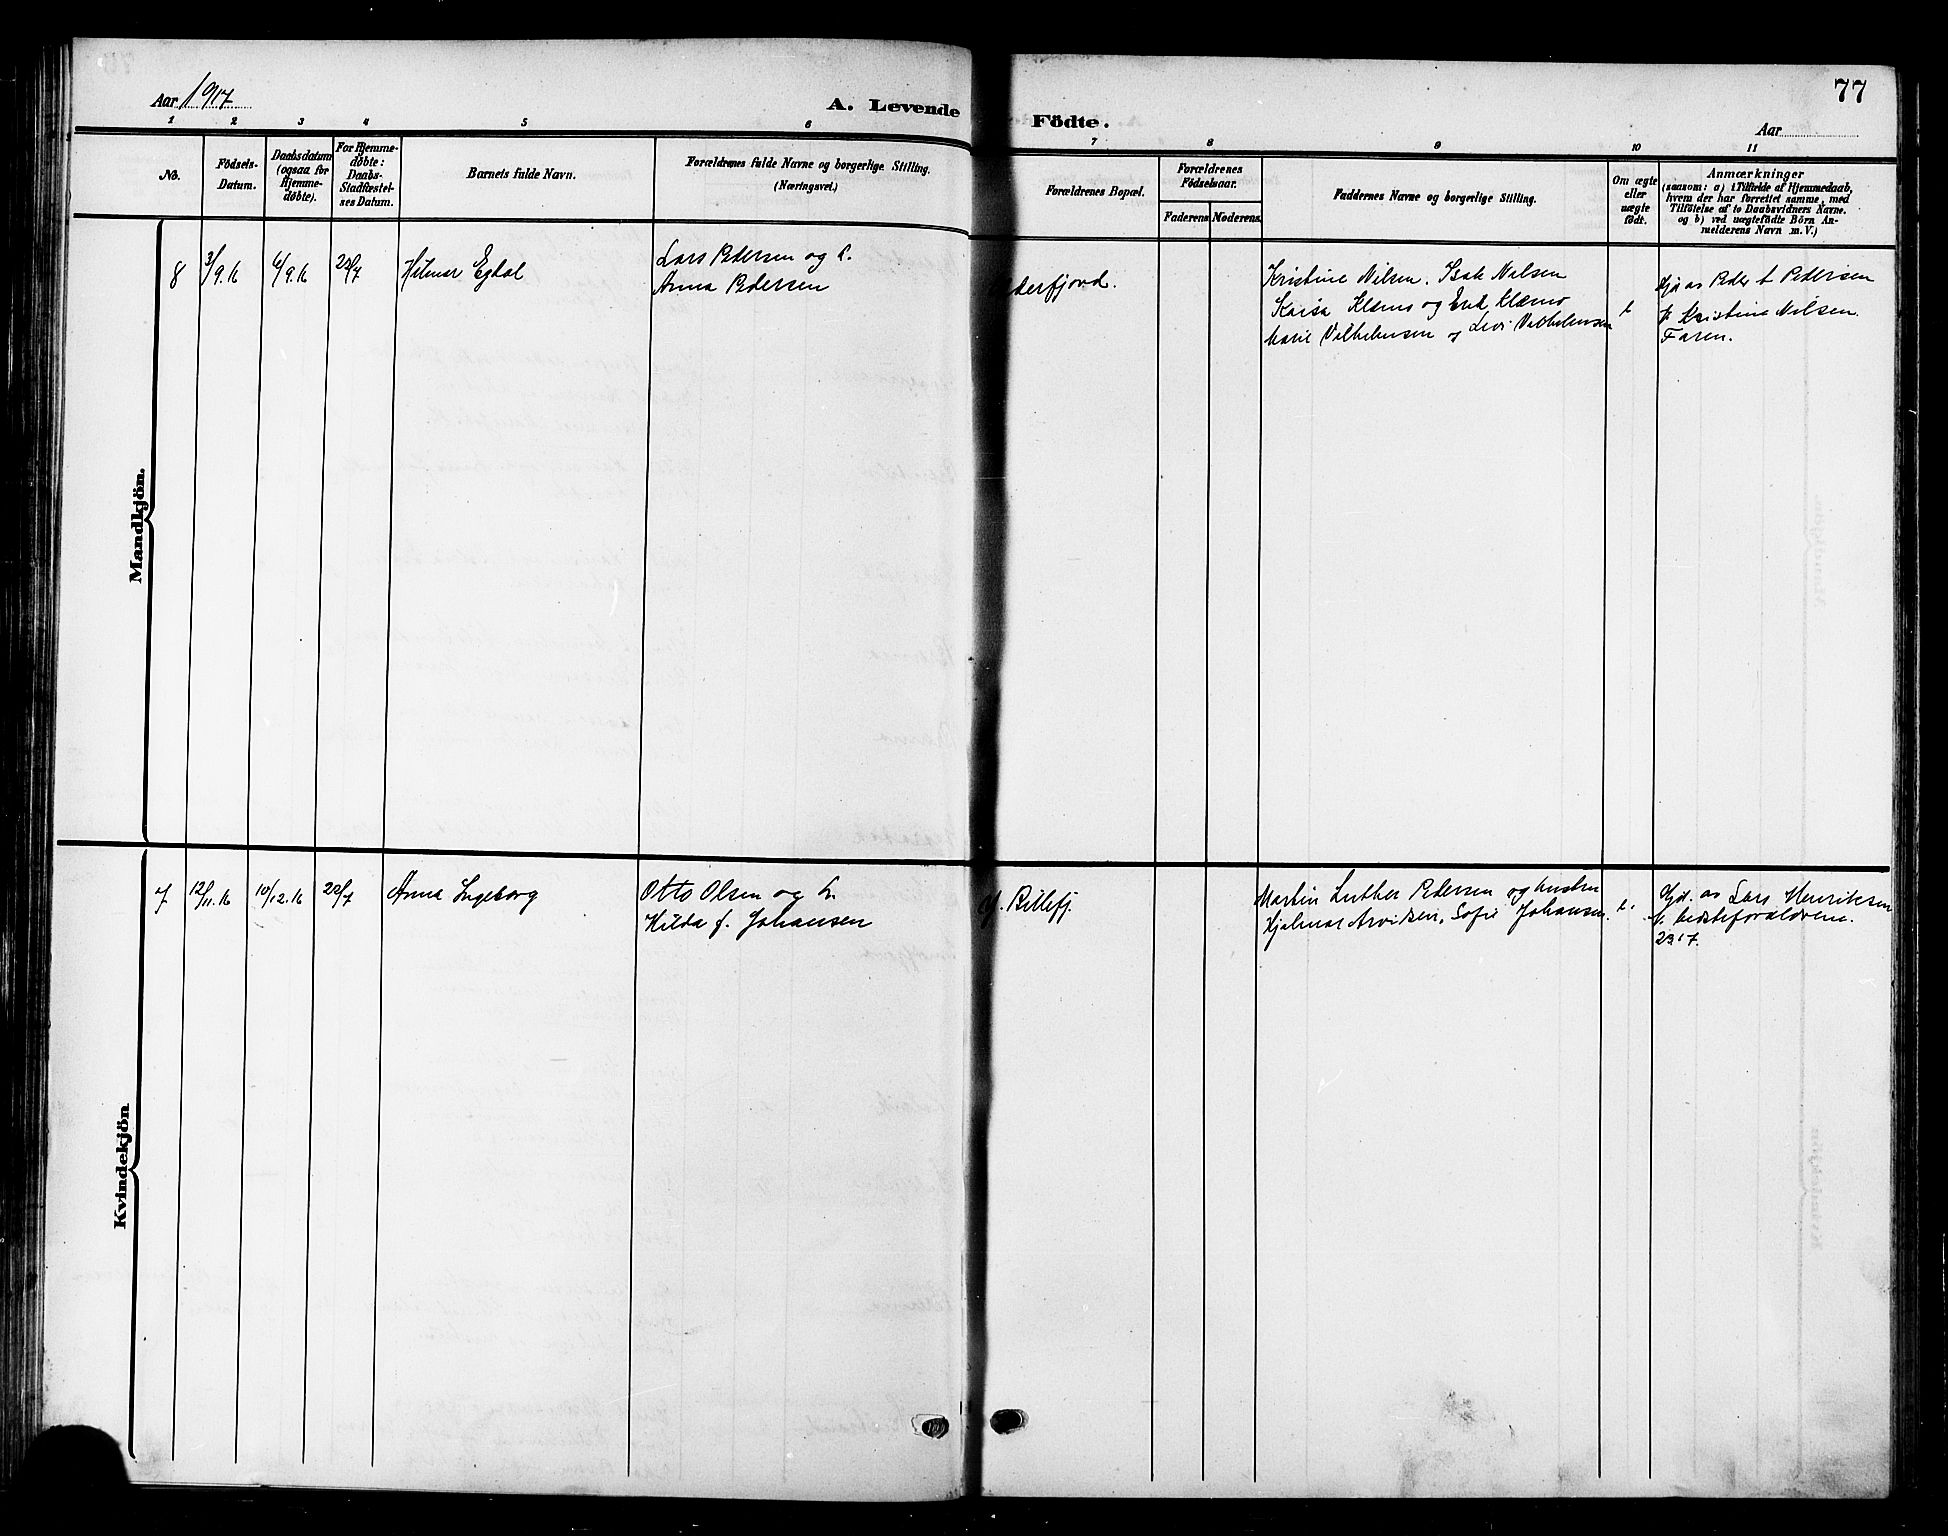 77
Aar 1917
A. Levende Födte.
Aar
1 2 3 4 5 6 7 8 9 10 11
No.
Födsels-
Datum.
Daabsdatum
(ogsaa for
Hjemme-
døbte).
For Hjemme-
døbte:
Daabs-
Stadfæstel-
ses Datum.
Barnets fulde Navn.
Forældrenes fulde Navne og borgerlige Stilling.
(Næringsvei.)
Forældrenes Bopæl.
Forældrenes
Fødselsaar.
Faderens Moderens
Faddernes Navne og borgerlige Stilling.
Om ægte
eller
uægte
født.
Anmærkninger
(saasom: a) i Tilfælde af Hjemmedaab,
hvem der har forrettet samme, med
Tilføielse af to Daabsvidners Navne.
og b) ved uægtefödte Börn An-
melderens Navn m. V.)
Mandkjön.
8 3/9.16 6/9.16 22/7 Hilmar Egdal
Lars Pedersen og h.
Anna Pedersen
derfjord.
Kristine Nilsen. Isak Nilsen
Kaisa Klemo og Erik Klæmo
Marie Vilhelmsen og Levi Vilhelmsen
Hjd av Peder Pedersen
Kristine Nilsen.
Faren.
Kvindekjön
7 12/11.16 10/12.16 22/7 Anna Ingeborg
Otto Olsen og h.
Hilda f. Johansen
Billefj.
Martin Luther Pedersen og hustru
Hjalmar Arvidsen, Sofie Johansen.
Hjd. av Lars Henriksen
bedsteforældrene.